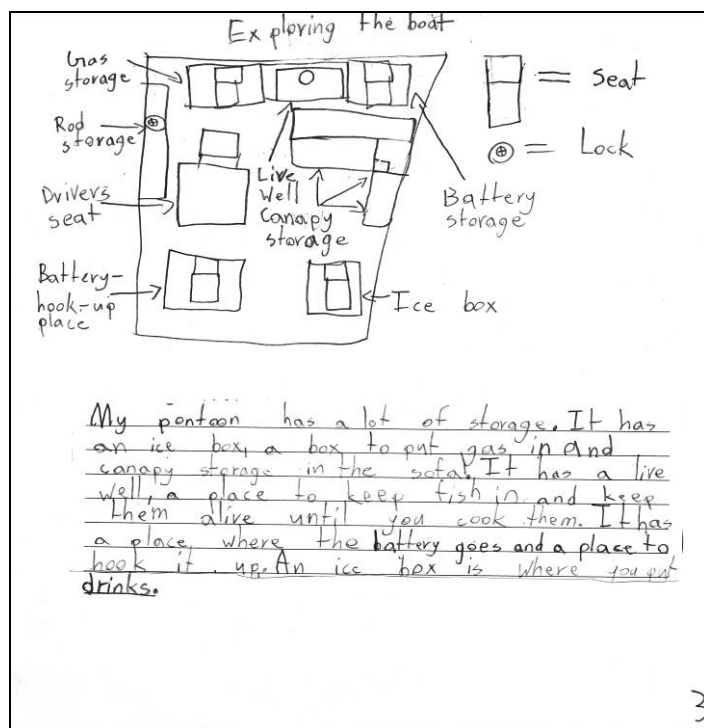 Exploring the boat
Gas
storage
= Seat
Rod
storage
= Lock
Drivers
seat
Live
Well
Canapy
storage
Battery
storage
Battery-
hook-up
place
Ice box
My pontoon has a lot of storage. It has
an ice box, a box to put gas in and
canapy storage in the sofa. It has a live
well, a place to keep fish in and keep
them alive until you cook them. It has
a place where the battery goes and a place to
hook it up. An ice box is where you put
drinks.
3